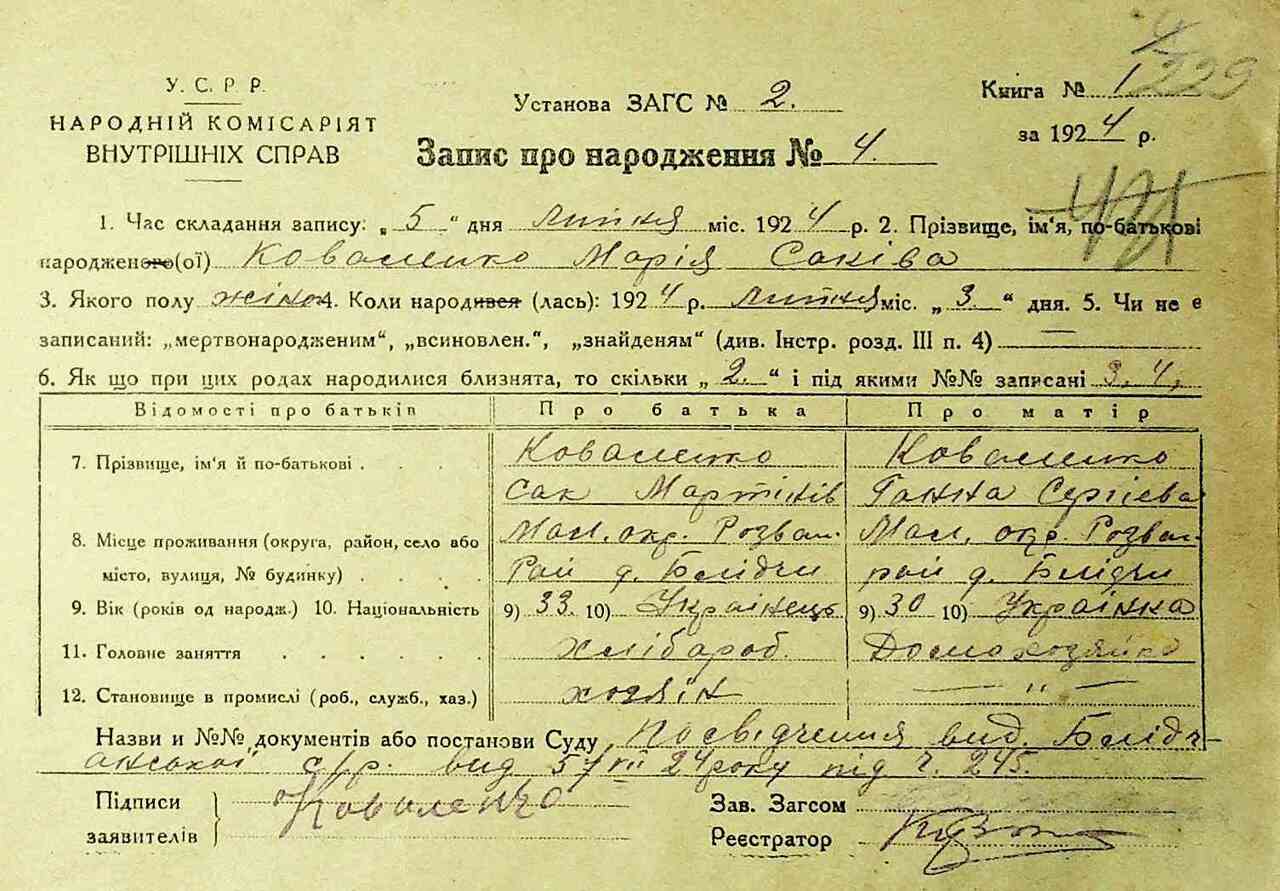 У. С. Р. Р.
НАРОДНІЙ КОМІСАРІЯТ
ВНУТРІШНІХ СПРАВ
Установа ЗАГС № 2.
Запис про народження № 4.
Книга № 1
229
за 1924 р.
1. Час складання запису: „5“ дня липня міс. 1924 р. 2. Прізвище, ім'я, по-батькові
народженого(ої) Коваленко Марія Саківа
3. Якого полу жіноч 4. Коли народився (лась): 1924 р. липня міс. „3.“ дня. 5. Чи не є
записаний: „мертвонародженим“, „всиновлен.“, „знайденям“ (див. Інстр. розд. III п. 4) —
6. Як що при цих родах народилися близнята, то скільки „2.“ і під якими №№ записані 3. 4,
Відомості про батьків Про батька Про матір
7. Прізвище, ім'я й по-батькові . . . . Коваленко Коваленко
Сак Мартинів Ганна Сергієва
8. Місце проживання (округа, район, село або Мал. окр. Розваж. Мал. окр. Розваж.
місто, вулиця, № будинку) . . . . Рай д. Блідчи рай д. Блідчи
9. Вік (років од народж.) 10. Національність 9) 33. 10) Українець 9) 30 10) Українка
11. Головне заняття . . . . . . хлібароб. Домохозяйка
12. Становище в промислі (роб., служб., хаз.) хозяін — „ —
Назви и №№ документів або постанови Суду Посвідчення вид. Блідч-
анської с/р. вид 5/VII 24 року під ч. 245.
Підписи
заявителів
Коваленко
Зав. Загсом
Реєстратор